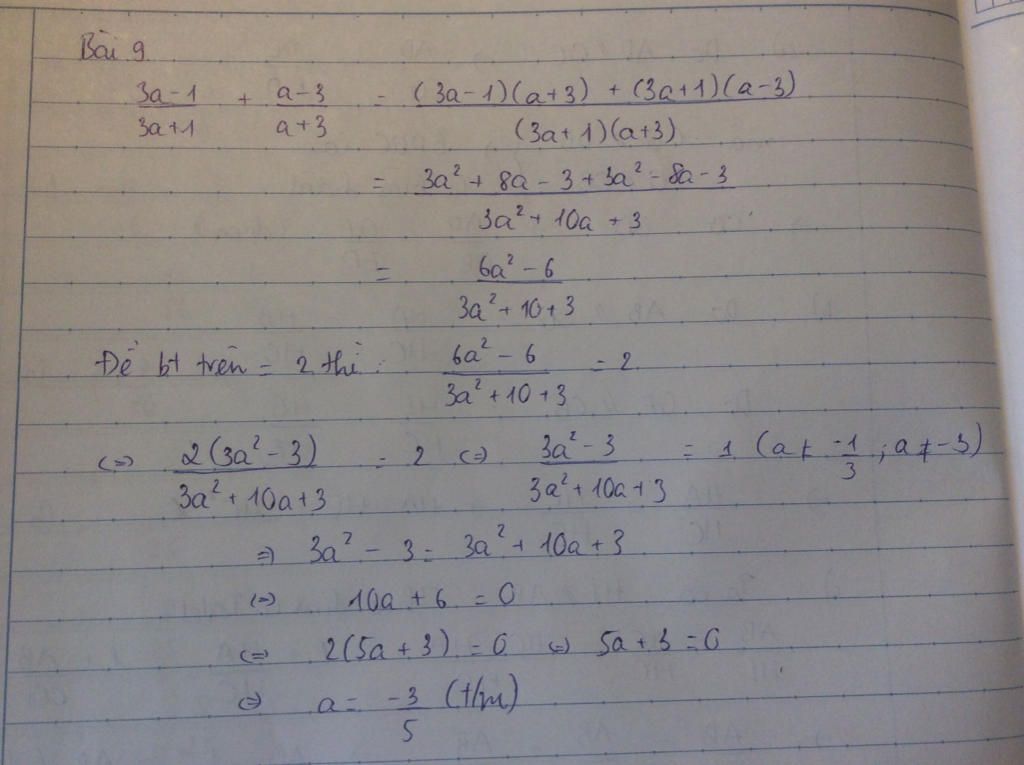 Bài 9
(3a-1)/(3a+1) + (a-3)/(a+3) = ((3a-1)(a+3) + (3a+1)(a-3))/((3a+1)(a+3))
= (3a² + 8a - 3 + 3a² - 8a - 3)/(3a² + 10a + 3)
= (6a² - 6)/(3a² + 10 + 3)
Để bt trên = 2 thì : (6a² - 6)/(3a² + 10 + 3) = 2
⇔ (2(3a² - 3))/(3a² + 10a + 3) = 2 ⇔ (3a² - 3)/(3a² + 10a + 3) = 1 (a ≠ -1/3 ; a ≠ -3)
⇒ 3a² - 3 = 3a² + 10a + 3
⇔ 10a + 6 = 0
⇔ 2(5a + 3) = 0 ⇔ 5a + 3 = 0
⇔ a = -3/5 (t/m)